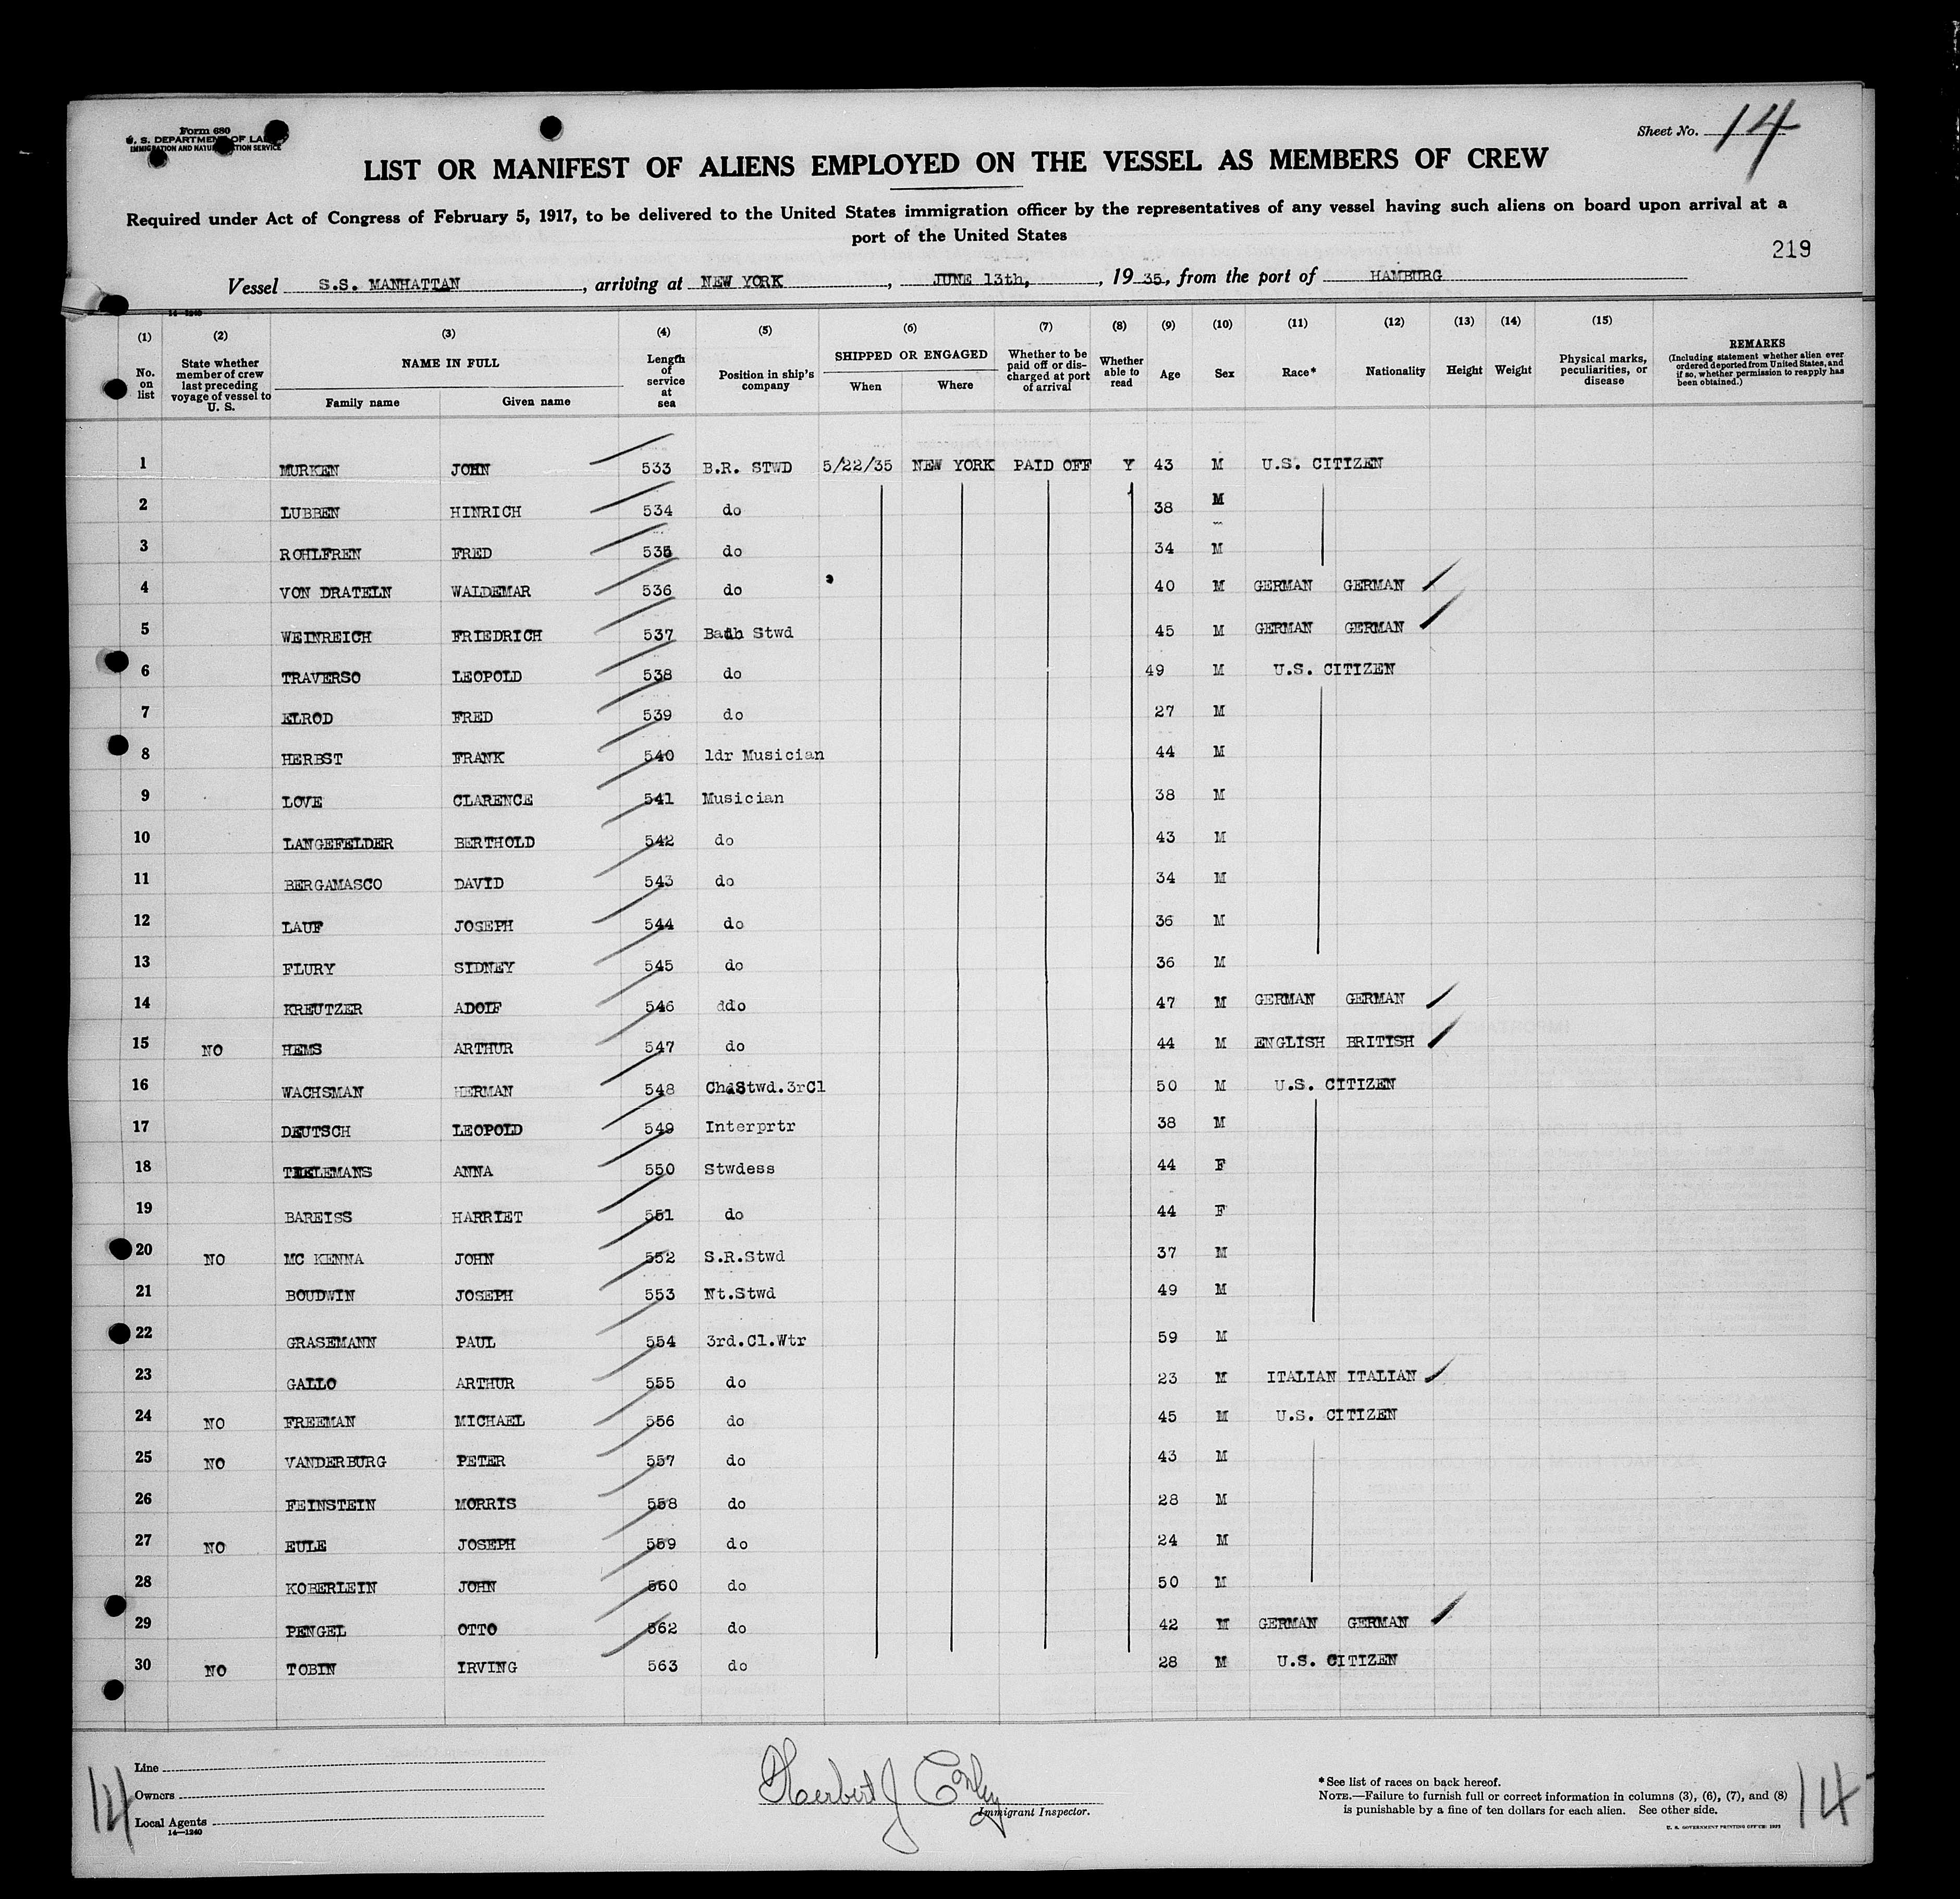 Form 680
U. S. DEPARTMENT OF LABOR
IMMIGRATION AND NATURALIZATION SERVICE
Sheet No. 14
LIST OR MANIFEST OF ALIENS EMPLOYED ON THE VESSEL AS MEMBERS OF CREW
Required under Act of Congress of February 5, 1917, to be delivered to the United States immigration officer by the representatives of any vessel having such aliens on board upon arrival at a
port of the United States
219
Vessel S.S. MANHATTAN, arriving at NEW YORK, JUNE 13th, , 19 35, from the port of HAMBURG
14—1240
(1) (2) (3) (4) (5) (6) (7) (8) (9) (10) (11) (12) (13) (14) (15)
No. on list
State whether member of crew last preceding voyage of vessel to U. S.
NAME IN FULL
Family name Given name
Length of service at sea
Position in ship's company
SHIPPED OR ENGAGED
When Where
Whether to be paid off or discharged at port of arrival
Whether able to read
Age Sex Race* Nationality Height Weight
Physical marks, peculiarities, or disease
REMARKS
(Including statement whether alien ever ordered deported from United States, and if so, whether permission to reapply has been obtained.)
1 MURKEN JOHN 533 B.R. STWD 5/22/35 NEW YORK PAID OFF Y 43 M U.S. CITIZEN
2 LUBBEN HINRICH 534 do 38 M
3 ROHLFREN FRED 535 do 34 M
4 VON DRATELN WALDEMAR 536 do 40 M GERMAN GERMAN
5 WEINREICH FRIEDRICH 537 Bath Stwd 45 M GERMAN GERMAN
6 TRAVERSO LEOPOLD 538 do 49 M U.S. CITIZEN
7 ELROD FRED 539 do 27 M
8 HERBST FRANK 540 ldr Musician 44 M
9 LOVE CLARENCE 541 Musician 38 M
10 LANGEFELDER BERTHOLD 542 do 43 M
11 BERGAMASCO DAVID 543 do 34 M
12 LAUF JOSEPH 544 do 36 M
13 FLURY SIDNEY 545 do 36 M
14 KREUTZER ADOLF 546 ddo 47 M GERMAN GERMAN
15 NO HEMS ARTHUR 547 do 44 M ENGLISH BRITISH
16 WACHSMAN HERMAN 548 ChdStwd.3rCl 50 M U.S. CITIZEN
17 DEUTSCH LEOPOLD 549 Interprtr 38 M
18 ANNA 550 Stwdess 44 F
19 BAREISS HARRIET 551 do 44 F
20 NO MC KENNA JOHN 552 S.R.Stwd 37 M
21 BOUDWIN JOSEPH 553 Nt.Stwd 49 M
22 GRASEMANN PAUL 554 3rd.Cl.Wtr 59 M
23 GALLO ARTHUR 555 do 23 M ITALIAN ITALIAN
24 NO FREEMAN MICHAEL 556 do 45 M U.S. CITIZEN
25 NO VANDERBURG PETER 557 do 43 M
26 FEINSTEIN MORRIS 558 do 28 M
27 NO EULE JOSEPH 559 do 24 M
28 KOBERLEIN JOHN 560 do 50 M
29 PENGEL OTTO 562 do 42 M GERMAN GERMAN
30 NO TOBIN IRVING 563 do 28 M U.S. CITIZEN
Line
Owners
Local Agents
14—1240
14
Herbert J Conley
Immigrant Inspector.
*See list of races on back hereof.
NOTE.—Failure to furnish full or correct information in columns (3), (6), (7), and (8)
is punishable by a fine of ten dollars for each alien. See other side.
U. S. GOVERNMENT PRINTING OFFICE:
14